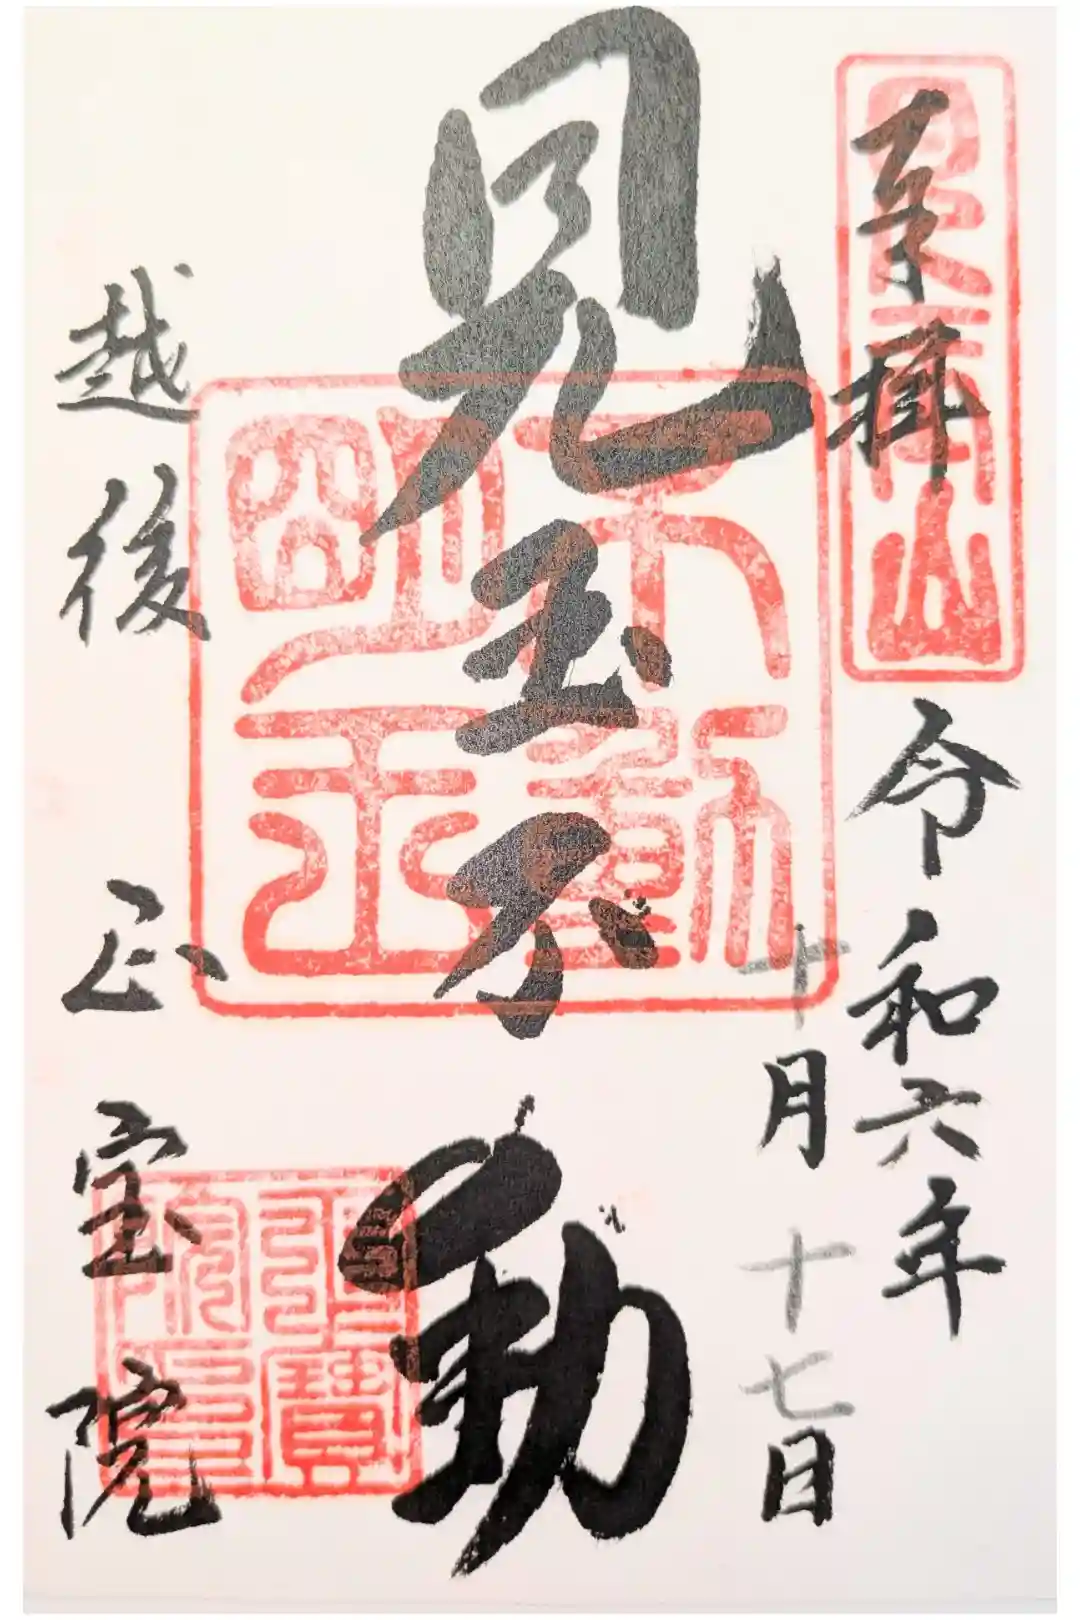 奉拝
令和六年
十月十七日
見玉不動
不動明王
越後
正宝院
正寳院印